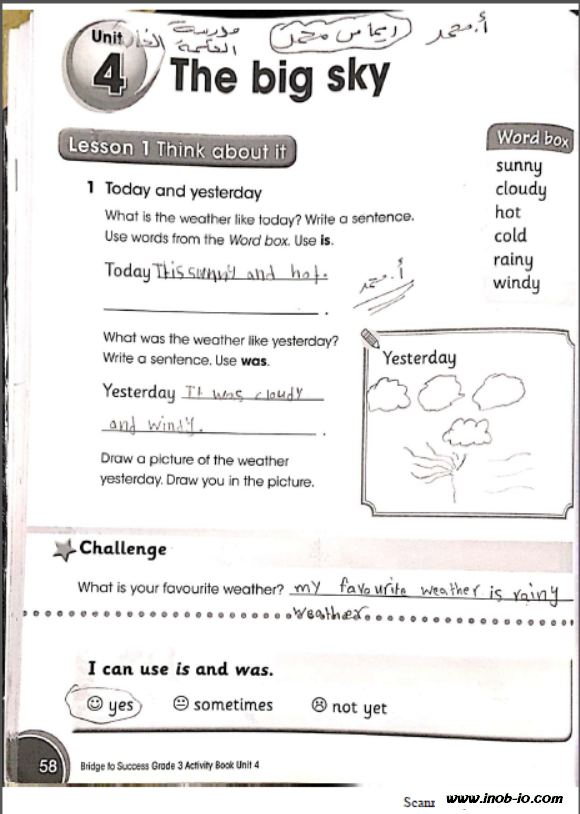 أ. محمد
ريماس محمد
مدرسة
Unit
4 The big sky
Lesson 1 Think about it
Word box
sunny
cloudy
hot
cold
rainy
windy
1 Today and yesterday
What is the weather like today? Write a sentence.
Use words from the Word box. Use is.
Today It is sunny and hot.
أ. محمد
What was the weather like yesterday?
Write a sentence. Use was.
Yesterday It was cloudy
and windy.
Draw a picture of the weather
yesterday. Draw you in the picture.
Yesterday
Challenge
What is your favourite weather? my favourite weather is rainy
weather
I can use is and was.
yes sometimes not yet
58 Bridge to Success Grade 3 Activity Book Unit 4
www.inob-io.com